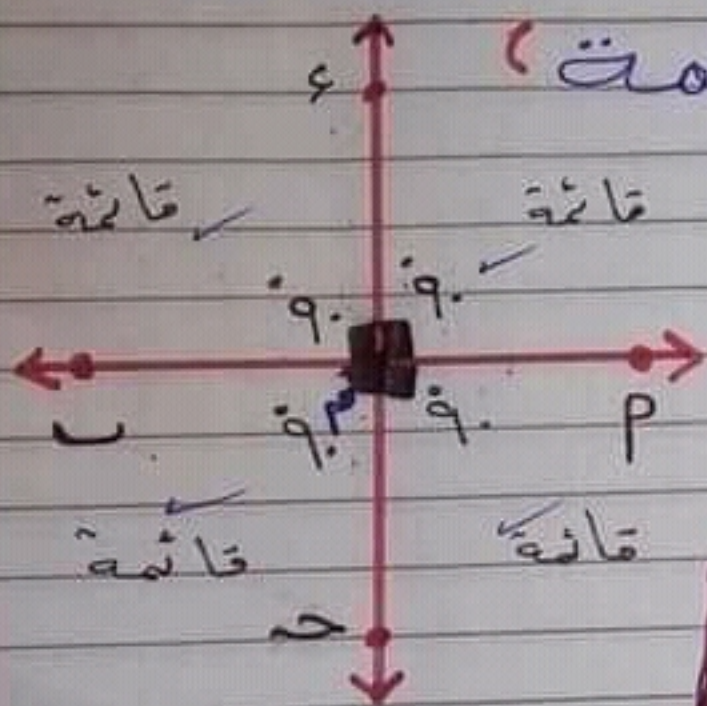 مة )
ء
قائمة قائمة
٩٠° ٩٠°
م
ب
٩٠° ٩٠°
قائمة قائمة
حـ